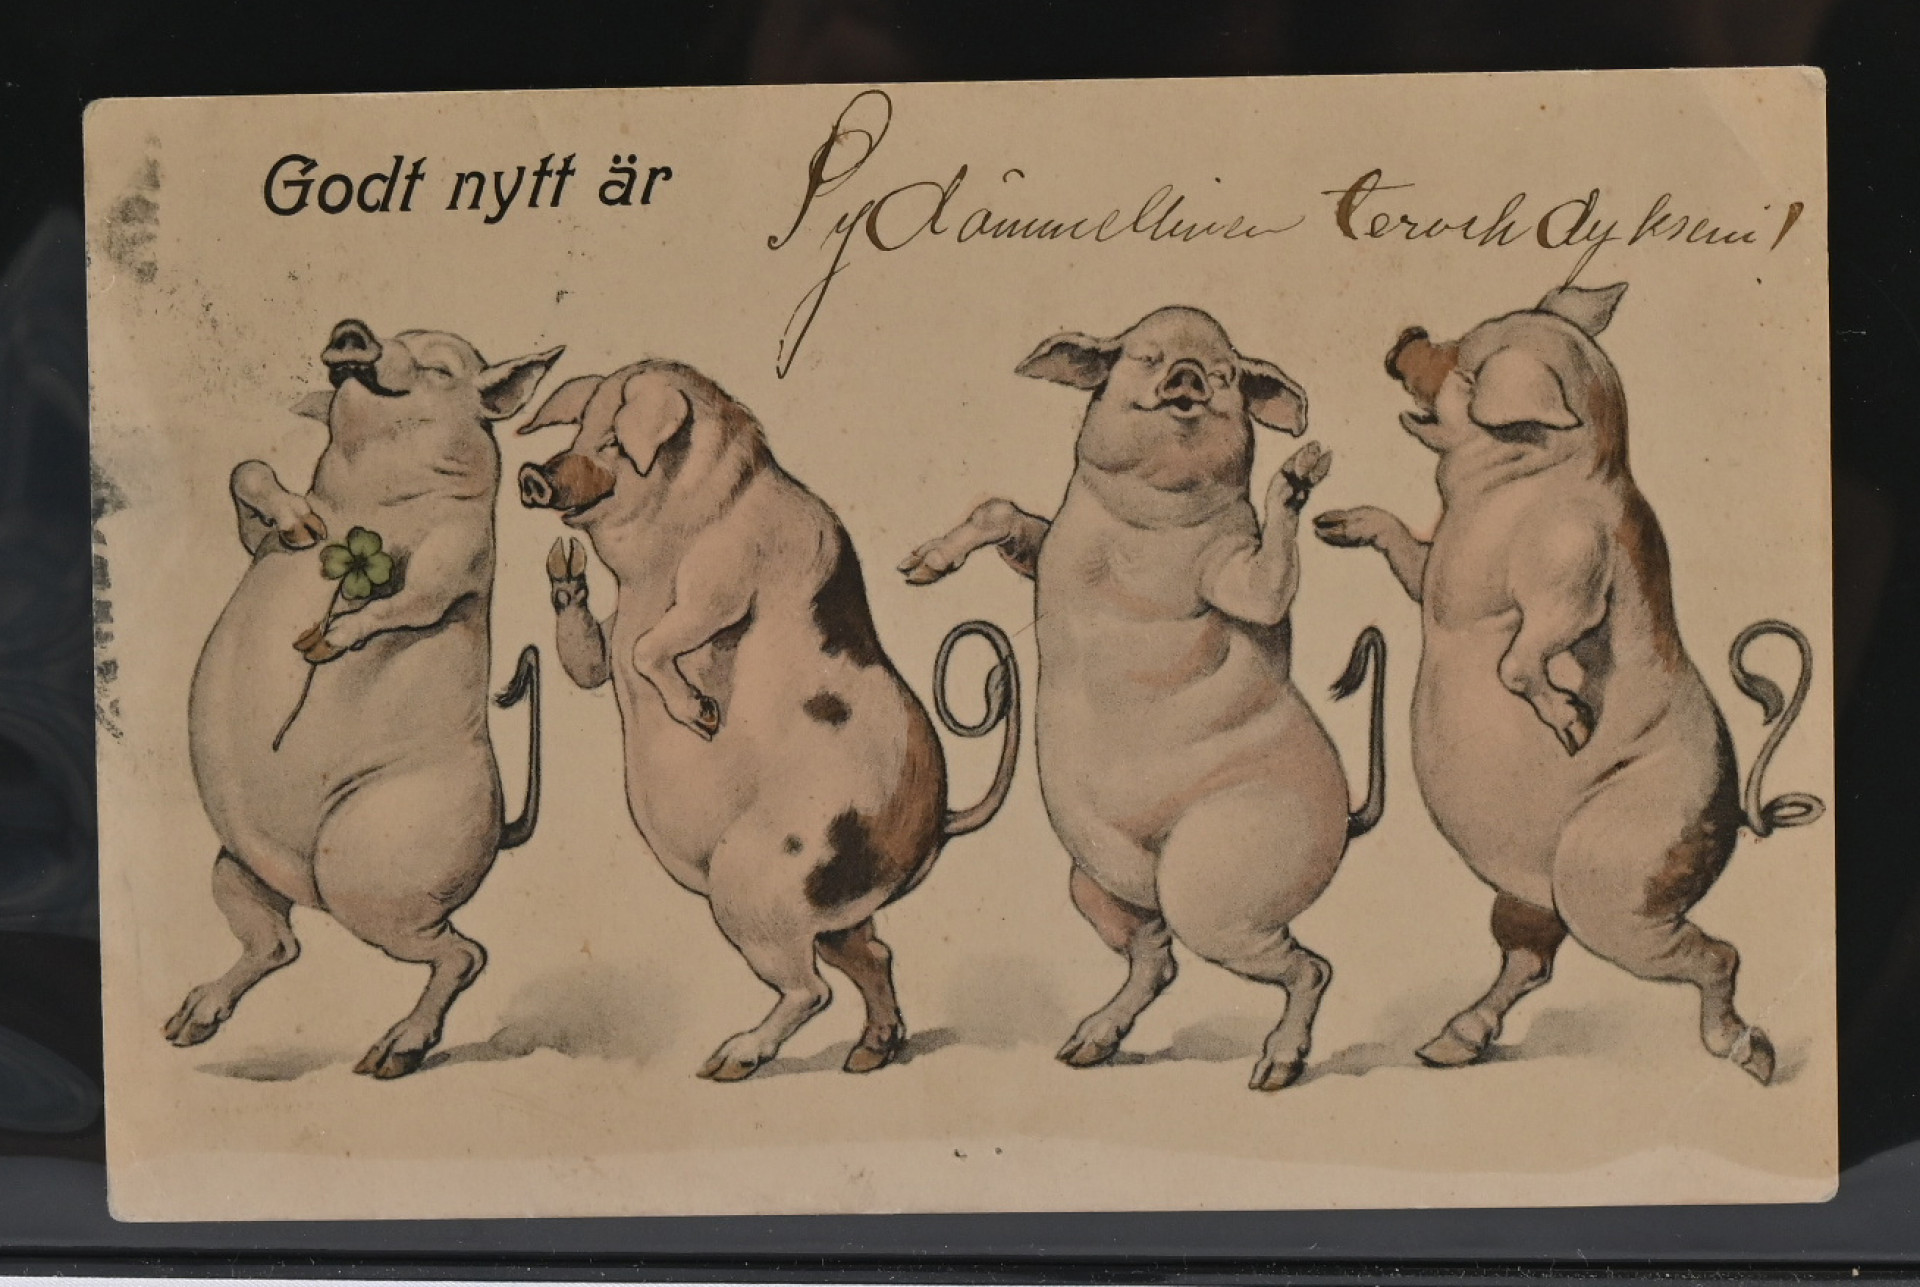 Godt nytt är
Sydämmellinen tervehdykseni!
1912